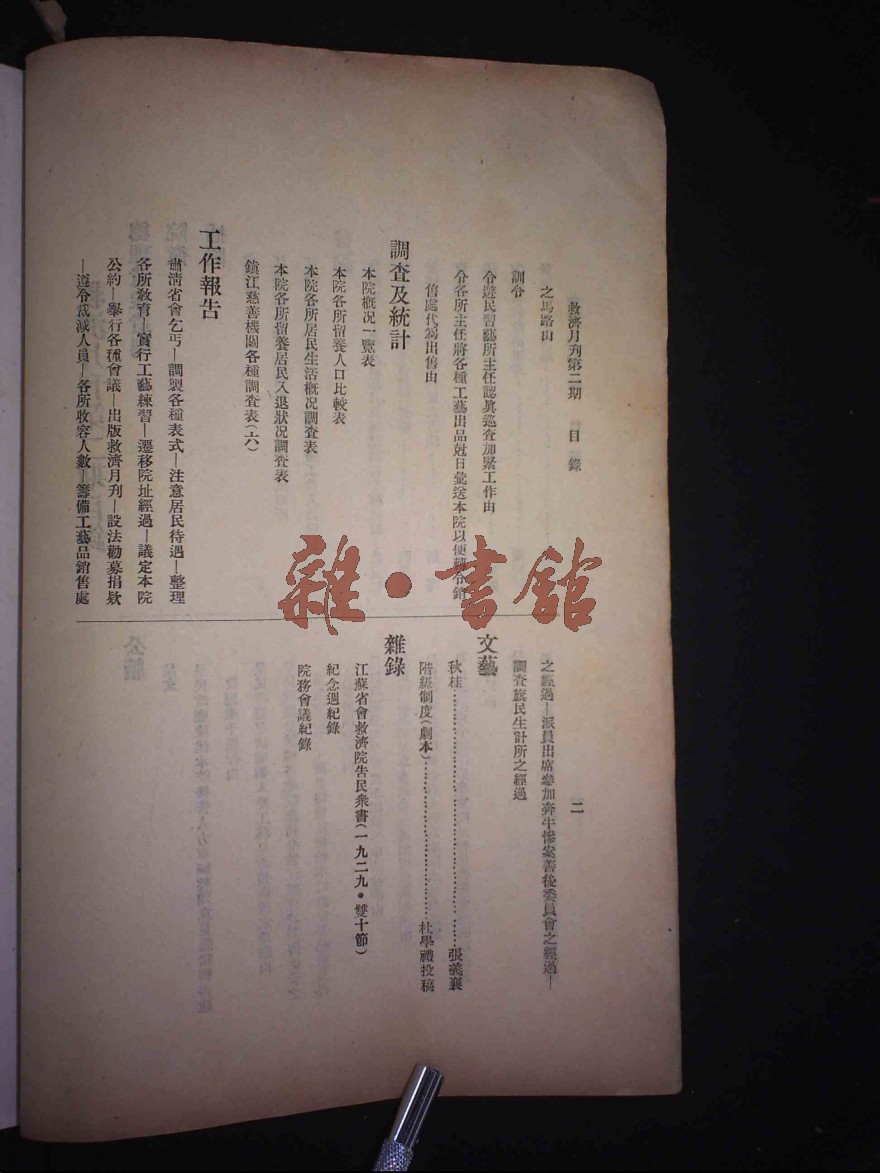 救濟月刊第二期 目錄
二
之馬路由
訓令
令遊民習藝所主任認眞巡查加緊工作由
令各所主任將各種工藝出品尅日彙送本院以便轉令銷
售處代為出售由
調查及統計
本院概况一覽表
本院各所留養人口比較表
本院各所居民生活概况調查表
本院各所留養居民入退狀况調查表
鎮江慈善機關各種調查表(六)
工作報告
肅清省會乞丐—調製各種表式—注意居民待遇—整理
各所敎育—實行工藝練習—遷移院址經過—議定本院
公約—舉行各種會議—出版救濟月刊—設法勸募捐欵
—遵令裁減人員—各所收容人數—籌備工藝品銷售處
之經過—派員出席參加奔牛慘案善後委員會之經過—
調查旗民生計所之經過
文藝
秋桂……張義襄
階級制度(劇本)……杜學禮投稿
雜錄
江蘇省會救濟院告民衆書(一九二九·雙十節)
紀念週紀錄
院務會議紀錄
雜·書館